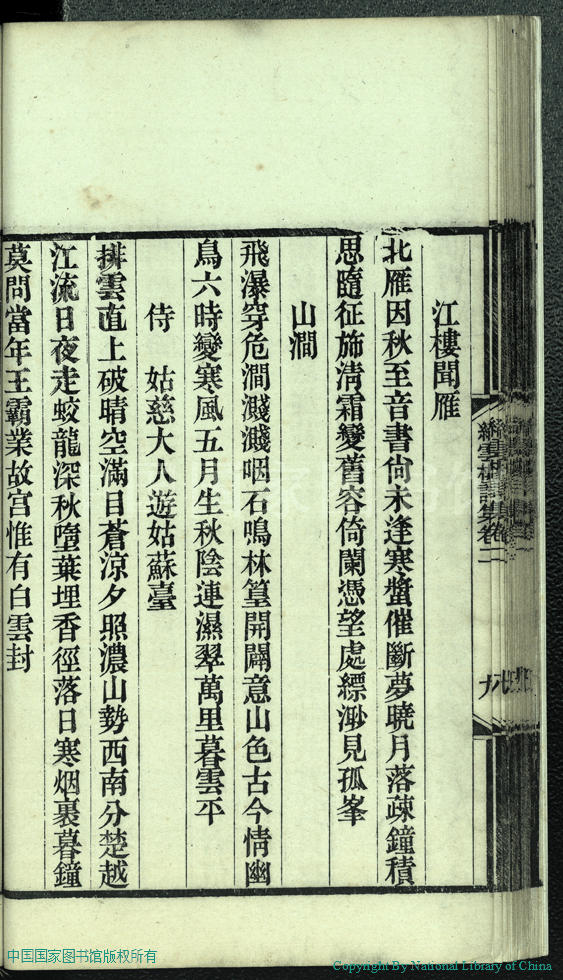 江樓聞雁
北雁因秋至音書尚未逢寒螿催斷夢曉月落疎鐘積
思隨征旆淸霜變舊容倚闌憑望處縹渺見孤峯
山澗
飛瀑穿危澗濺濺咽石鳴林篁開闢意山色古今情幽
鳥六時變寒風五月生秋陰連濕翠萬里暮雲平
侍 姑慈大人遊姑蘇臺
排雲直上破晴空滿目蒼涼夕照濃山勢西南分楚越
江流日夜走蛟龍深秋墮葉埋香徑落日寒烟裹暮鐘
莫問當年王霸業故宮惟有白雲封
雲 詩集卷二
九
中国国家图书馆版权所有
Copyright By National Library of China